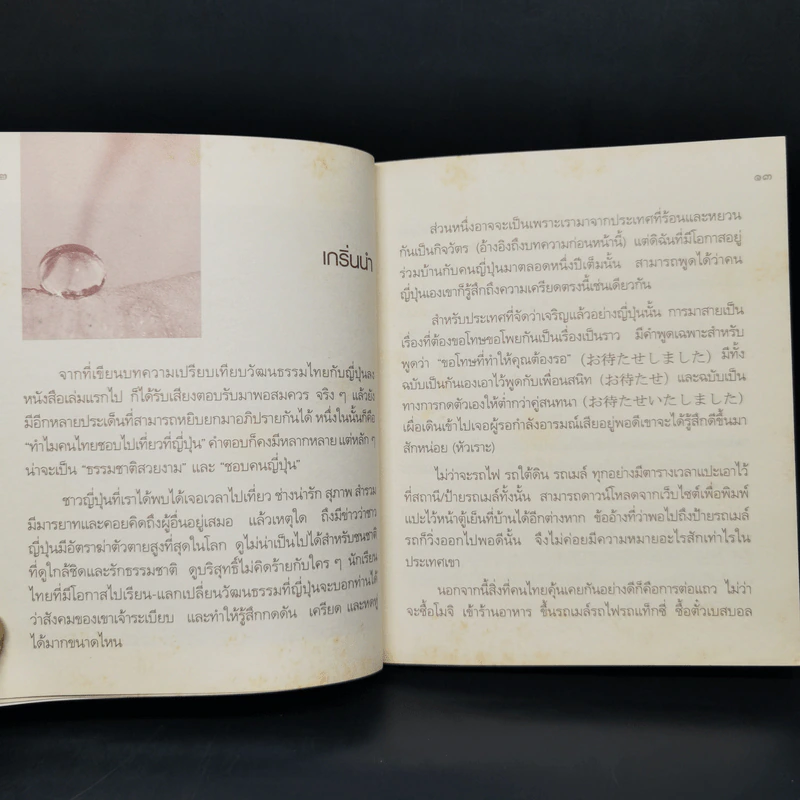 ๒
เกริ่นนำ
จากที่เขียนบทความเปรียบเทียบวัฒนธรรมไทยกับญี่ปุ่นลง
หนังสือเล่มแรกไป ก็ได้รับเสียงตอบรับมาพอสมควร จริง ๆ แล้วยัง
มีอีกหลายประเด็นที่สามารถหยิบยกมาอภิปรายกันได้ หนึ่งในนั้นก็คือ
“ทำไมคนไทยชอบไปเที่ยวที่ญี่ปุ่น” คำตอบก็คงมีหลากหลาย แต่หลัก ๆ
น่าจะเป็น “ธรรมชาติสวยงาม” และ “ชอบคนญี่ปุ่น”
ชาวญี่ปุ่นที่เราได้พบได้เจอเวลาไปเที่ยว ช่างน่ารัก สุภาพ สำรวม
มีมารยาทและคอยคิดถึงผู้อื่นอยู่เสมอ แล้วเหตุใด ถึงมีข่าวว่าชาว
ญี่ปุ่นมีอัตราฆ่าตัวตายสูงที่สุดในโลก ดูไม่น่าเป็นไปได้สำหรับชนชาติ
ที่ดูใกล้ชิดและรักธรรมชาติ ดูบริสุทธิ์ไม่คิดร้ายกับใคร ๆ นักเรียน
ไทยที่มีโอกาสไปเรียน-แลกเปลี่ยนวัฒนธรรมที่ญี่ปุ่นจะบอกท่านได้
ว่าสังคมของเขาเจ้าระเบียบ และทำให้รู้สึกกดดัน เครียด และหดหู่
ได้มากขนาดไหน
๑๓
ส่วนหนึ่งอาจจะเป็นเพราะเรามาจากประเทศที่ร้อนและหยวน
กันเป็นกิจวัตร (อ้างอิงถึงบทความก่อนหน้านี้) แต่ดิฉันที่มีโอกาสอยู่
ร่วมบ้านกับคนญี่ปุ่นมาตลอดหนึ่งปีเต็มนั้น สามารถพูดได้ว่าคน
ญี่ปุ่นเองเขาก็รู้สึกถึงความเครียดตรงนี้เช่นเดียวกัน
สำหรับประเทศที่จัดว่าเจริญแล้วอย่างญี่ปุ่นนั้น การมาสายเป็น
เรื่องที่ต้องขอโทษขอโพยกันเป็นเรื่องเป็นราว มีคำพูดเฉพาะสำหรับ
พูดว่า “ขอโทษที่ทำให้คุณต้องรอ” (お待たせしました) มีทั้ง
ฉบับเป็นกันเองเอาไว้พูดกับเพื่อนสนิท (お待たせ) และฉบับเป็น
ทางการกดตัวเองให้ต่ำกว่าคู่สนทนา (お待たせいたしました)
เผื่อเดินเข้าไปเจอผู้รอกำลังอารมณ์เสียอยู่พอดีเขาจะได้รู้สึกดีขึ้นมา
สักหน่อย (หัวเราะ)
ไม่ว่าจะรถไฟ รถใต้ดิน รถเมล์ ทุกอย่างมีตารางเวลาแปะเอาไว้
ที่สถานี/ป้ายรถเมล์ทั้งนั้น สามารถดาวน์โหลดจากเว็บไซต์เพื่อพิมพ์
แปะไว้หน้าตู้เย็นที่บ้านได้อีกต่างหาก ข้ออ้างที่ว่าพอไปถึงป้ายรถเมล์
รถก็วิ่งออกไปพอดีนั้น จึงไม่ค่อยมีความหมายอะไรสักเท่าไรใน
ประเทศเขา
นอกจากนี้สิ่งที่คนไทยคุ้นเคยกันอย่างดีก็คือการต่อแถว ไม่ว่า
จะซื้อโมจิ เข้าร้านอาหาร ขึ้นรถเมล์รถไฟรถแท็กซี่ ซื้อตั๋วเบสบอล